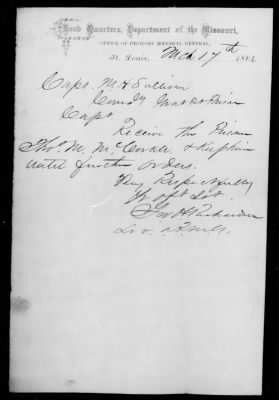 Head Quarters, Department of the Missouri,
OFFICE OF PROVOST MARSHAL GENERAL,
St. Louis, Mch 17th 1864
Capt. M H Sullivan
Comdg
Capt
Receive the Prisoner
Thos. M. & Keep him
until further orders.
Very Respectfully
Yr obt Svt
Geo H Richardson
Lt &